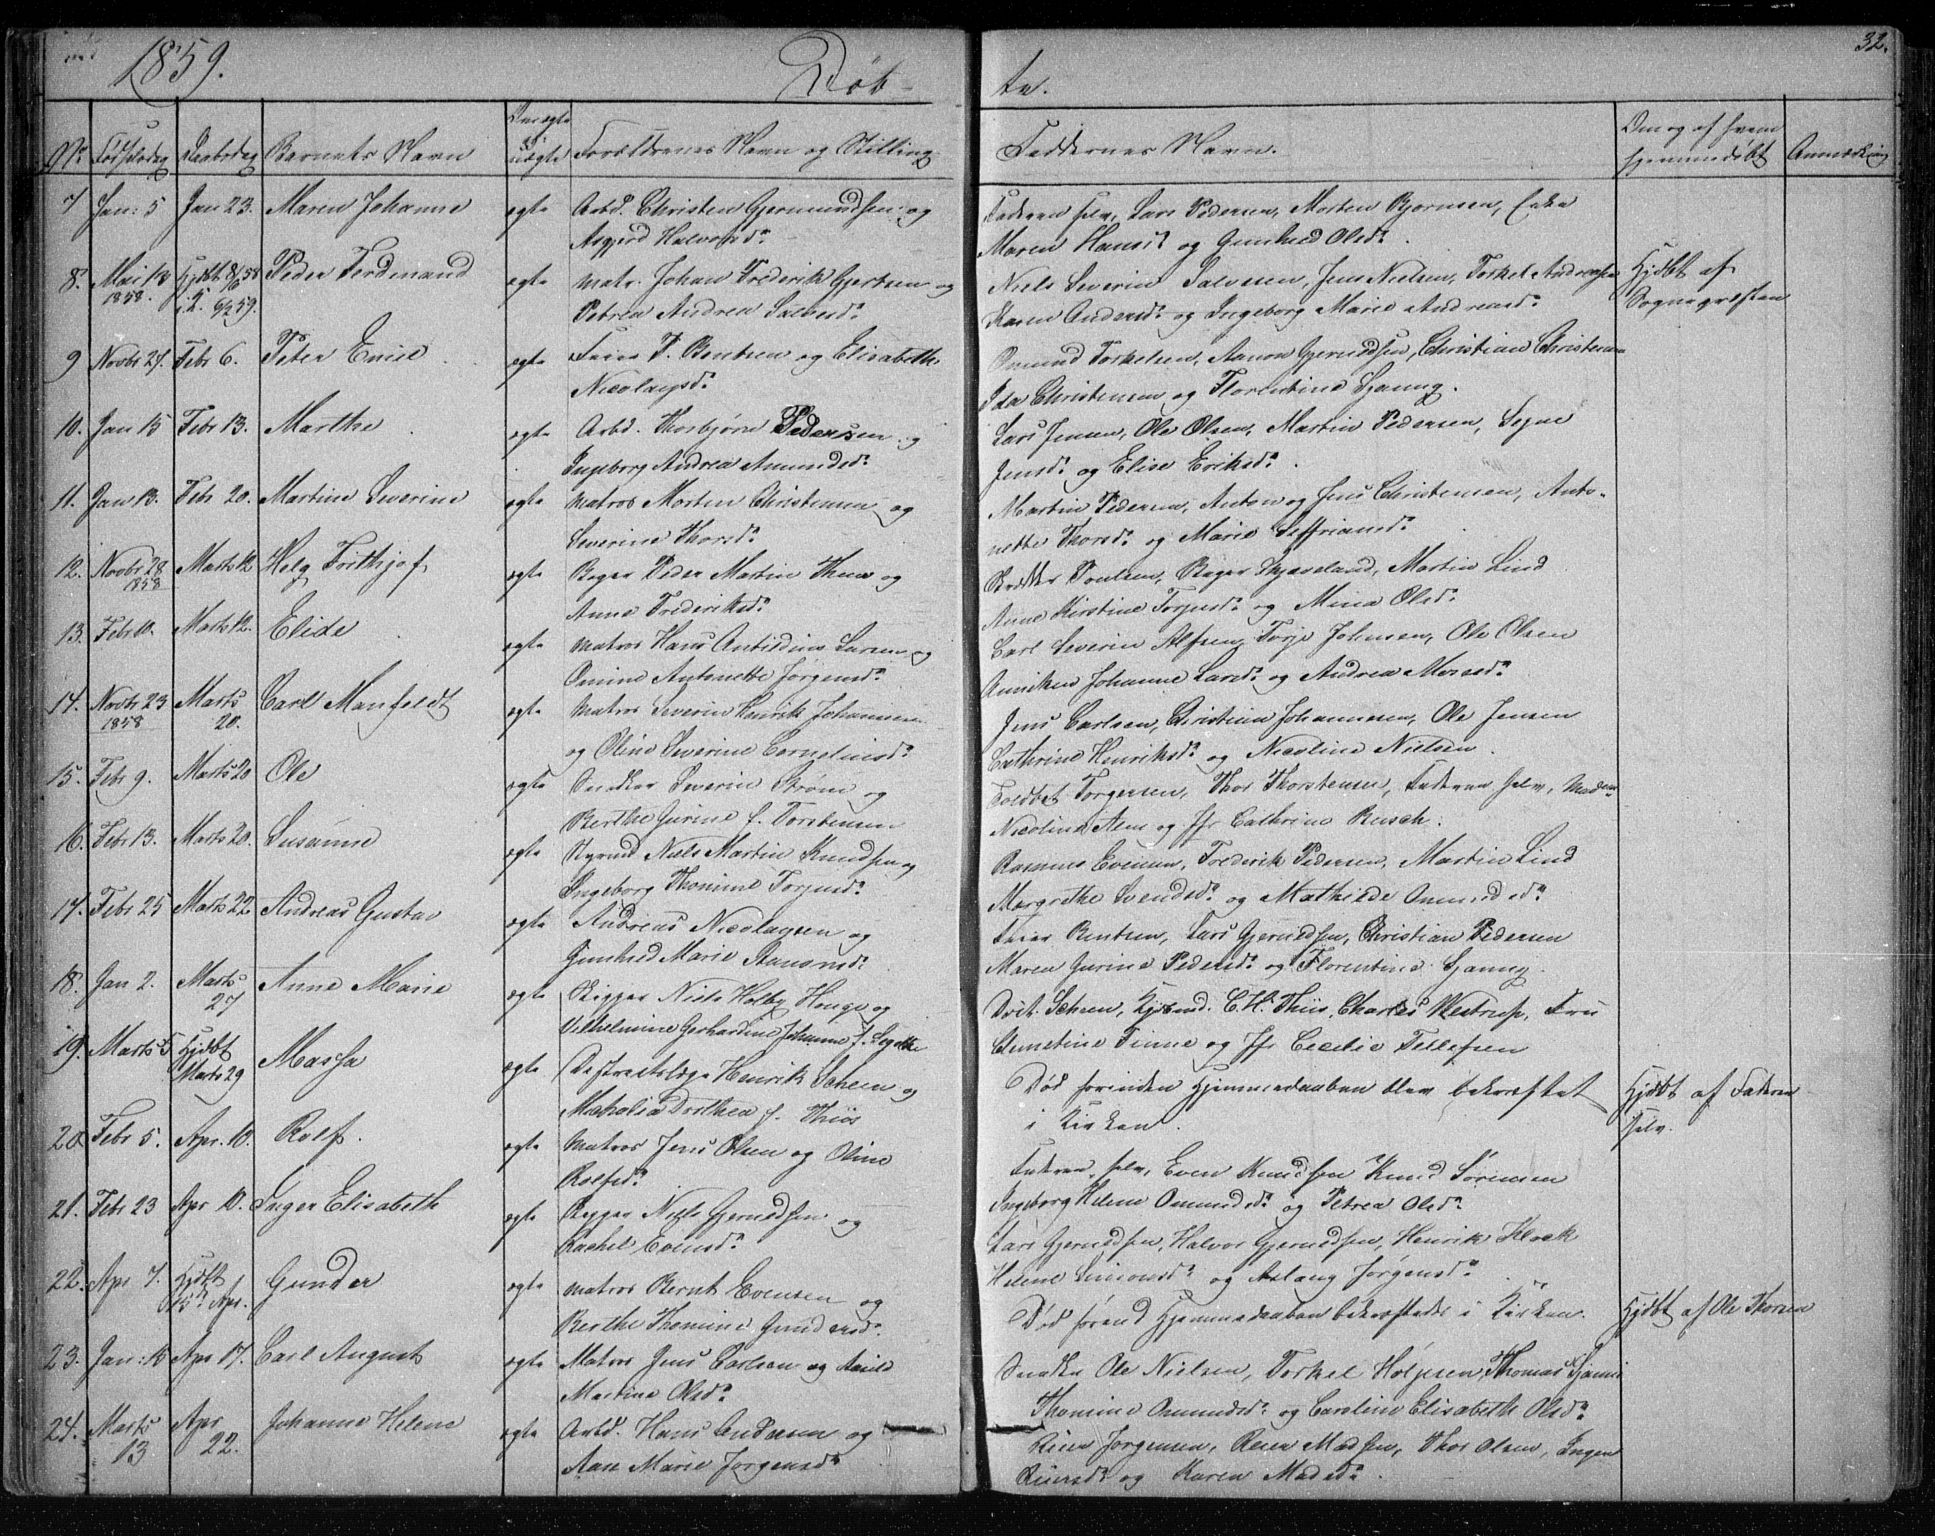 1859.
Døb-
te.
32.
No Fødselsdag Daabsdag Barnets Navn
Om ægte
uægte
Forældrenes Navn og Stilling
Faddernes Navn.
Om og af hvem
hjemmedøbt
Anmærkning
7 Jan: 5 Jan 23. Maren Johanne ægte Arbd. Christen Gjermundsen og
Asgjerd Halvorsd.
Faderen selv, Lars Pedersen, Morten Bjørnsen, Enke
Maren Hansd. og Gunhild Olsd.
8. Mai 13 1858. Hjdbt 8/6 58 i K. 6/2 59. Peder Ferdinand ægte Matr. Johan Frederik Gjertsen og
Petrea Andrea Salvesd.
Niels Severin Salvesen, Jens Nielsen, Torkel Andreasen
Karen Andersd. og Ingeborg Marie Andreasd.
Hjdbt af
Sognepresten
9 Novbr 27. Febr 6. Peter Enile ægte Faier P. Bentsen og Elisabeth
Nicolaysd.
Omund Torkelsen, Aanon Gjeruldsen, Christian Christensen
Ida Christensen og Florentine Gjannng.
10. Jan 15 Febr 13. Marthe ægte Arbd. Thorbjørn Pedersen og
Ingeborg Andrea Amundsd.
Lars Jensen, Ole Olsen, Martin Pedersen, Signe
Jensd. og Elise Eriksd.
11. Jan 13. Febr 20. Martine Severine ægte Matros Morten Christensen og
Severine Thorsd.
Martin Pedersen, Anton og Jens Christensen, Anto-
nette Thorsd. og Marie Zeffriansd.
12. Novbr 28 1858 Marts 12 Helg Frithjof ægte Bager Peder Martin Thue og
Anne Frederiksd.
Poulsen, Bager Skjæveland, Martin Lind
Anne Kirstine Torjusd. og Mina Olsd.
13. Febr 10. Marts 12. Elide ægte Matros Hans Larsen og
Omine Antonette Jørgensd.
Carl Severin Alfsen, Torje Johnsen, Ole Olsen
Anniken Johanne Larsd. og Andrea Moesd.
14. Novbr 23 1858 Marts 20. Carl Manfeldt ægte Matros Severin Henrik Johannesen
og Oline Severine Corneliusd.
Jens Carlsen, Christian Johannesen, Ole Jensen
Cathrine Henriksd. og Nicoline Nielsen.
15. Febr 9. Marts 20 Ole ægte Snedker Severin Strøm og
Berthe Gurine f. Torstensen
Toldbet. Torgersen, Thor Thorstensen, Faderen selv, Madam
Nicoline Aem og Jfr Cathrine Rusch.
16. Febr 13. Marts 20. Susanne ægte Styrmd Niels Martin Knudsen og
Ingeborg Thomine Torjusd.
Rasmus Evensen, Frederik Pedersen, Martin Lind
Margrethe Svendsd. og Mathilde Omundsd.
17. Febr 25 Marts 22 Andreas Gustav ægte Andreas Nicolaysen og
Gunhild Marie Aanonsd.
Faier Bentsen, Lars Gjeruldsen, Christian Pedersen
Maren Gurine Pedersd. og Florentine Gjannng.
18. Jan 2. Marts 27 Anne Marie ægte Skipper Niels Holby Hougo og
Vilhelmine Gerhardine Johanne f. Segelke
Dist. Scheen, Kjøbmd. C. H. Thiis, Charles Westrup, Fru
Clementine Finne og Jfr Cecilie Tellefsen
19. Marts 5 Hjdbt Marts 29 Massa ægte Distriktslæge Henrik Scheen og
Mathalia Dorthea f. Thiis
Død forinden Hjemmedaaben blev bekræftet
i Kirken.
Hjdbt af Faderen
selv.
20. Febr 5. Apr. 10. Rolf. ægte Matros Jens Olsen og Oline
Rolfsd.
Faderen selv, Even Knudsen Knud Sørensen
Ingeborg Helene Omundsd. og Petrea Olsd.
21. Febr 23 Apr 10. Inger Elisabeth ægte Skipper Niels Gjeruldsen og
Rachel Evensd.
Lars Gjeruldsen, Halvor Gjeruldsen, Henrik Klock
Helene Simonsd. og Aslaug Jørgensd.
22. Apr 7. Hjdbt 15d Apr. Gunder ægte Matros Bernt Evensen og
Berthe Thomine Gundersd.
Død førend Hjemmedaaben bekræftedes i Kirken.
Hjdbt af Ole Thorsen
23. Jan: 15 Apr 17. Carl August ægte Matros Jens Carlsen og
Martine Olsd.
Snedker Ole Nielsen, Torkel Holjesen, Thomas
Thomine Omundsd. og Caroline Elisabeth Olsd.
24. Marts 13 Apr 22. Johanne Helene ægte Arbd. Hans Andersen og
Ane Marie Jørgensd.
Reier Jørgensen, Reier Madsen, Thor Olsen, Inger
Reiersd. og Karen Madsd.